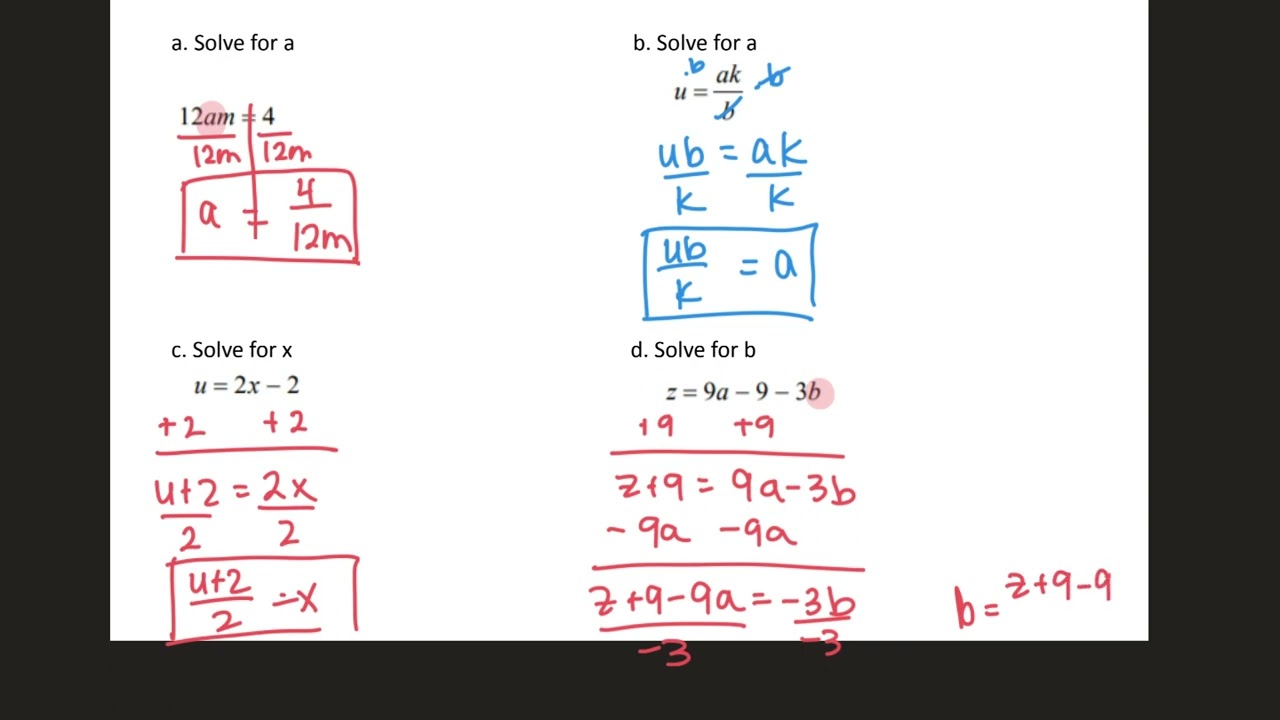 a. Solve for a
12am = 4
12m 12m
a = 4/12m
b. Solve for a
.b
u = ak/b b
ub/k = ak/k
ub/k = a
c. Solve for x
u = 2x − 2
+2 +2
u+2/2 = 2x/2
u+2/2 = x
d. Solve for b
z = 9a − 9 − 3b
+9 +9
z+9 = 9a-3b
- 9a -9a
z+9-9a/-3 = -3b/-3
b = z+9-9